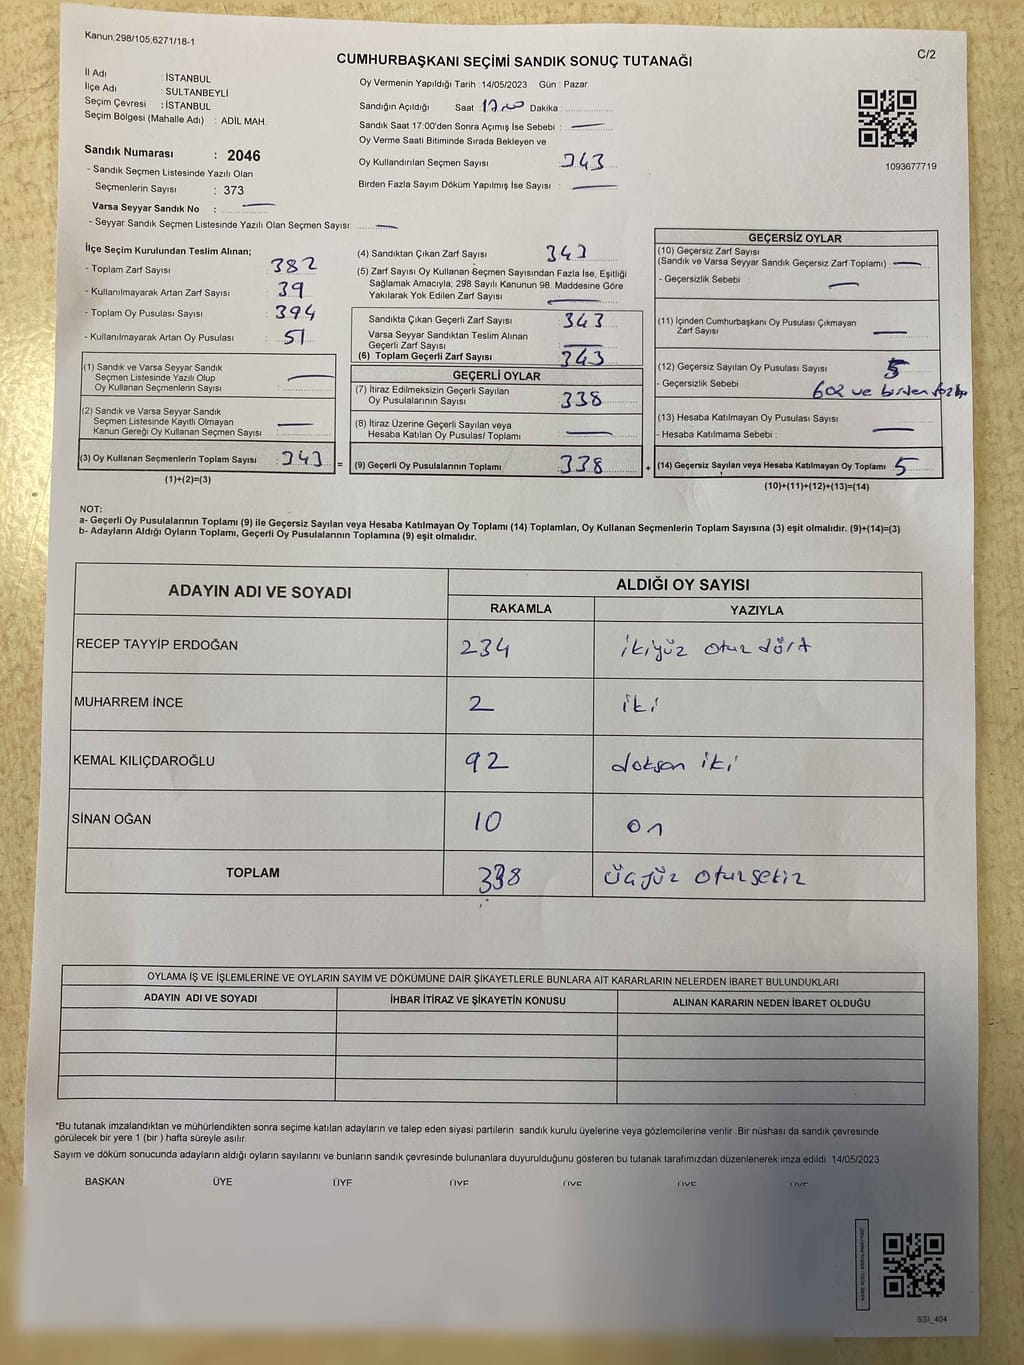 Kanun;298/105;6271/18-1
C/2
CUMHURBAŞKANI SEÇİMİ SANDIK SONUÇ TUTANAĞI
İl Adı : İSTANBUL
İlçe Adı : SULTANBEYLİ
Seçim Çevresi : İSTANBUL
Seçim Bölgesi (Mahalle Adı) : ADİL MAH.
Sandık Numarası : 2046
- Sandık Seçmen Listesinde Yazılı Olan
Seçmenlerin Sayısı : 373
Varsa Seyyar Sandık No :
- Seyyar Sandık Seçmen Listesinde Yazılı Olan Seçmen Sayısı:
Oy Vermenin Yapıldığı Tarih : 14/05/2023 Gün : Pazar
Sandığın Açıldığı Saat 17:00 Dakika :
Sandık Saat 17:00'den Sonra Açımış İse Sebebi :
Oy Verme Saati Bitiminde Sırada Bekleyen ve
Oy Kullandırılan Seçmen Sayısı 343
Birden Fazla Sayım Döküm Yapılmış İse Sayısı :
1093677719
İlçe Seçim Kurulundan Teslim Alınan;
- Toplam Zarf Sayısı : 382
- Kullanılmayarak Artan Zarf Sayısı : 39
- Toplam Oy Pusulası Sayısı : 394
- Kullanılmayarak Artan Oy Pusulası : 51
(1) Sandık ve Varsa Seyyar Sandık
Seçmen Listesinde Yazılı Olup
Oy Kullanan Seçmenlerin Sayısı :
(2) Sandık ve Varsa Seyyar Sandık
Seçmen Listesinde Kayıtlı Olmayan
Kanun Gereği Oy Kullanan Seçmen Sayısı :
(3) Oy Kullanan Seçmenlerin Toplam Sayısı : 343 =
(1)+(2)=(3)
(4) Sandıktan Çıkan Zarf Sayısı 343
(5) Zarf Sayısı Oy Kullanan Seçmen Sayısından Fazla İse, Eşitliği
Sağlamak Amacıyla; 298 Sayılı Kanunun 98. Maddesine Göre
Yakılarak Yok Edilen Zarf Sayısı
Sandıkta Çıkan Geçerli Zarf Sayısı 343
Varsa Seyyar Sandıktan Teslim Alınan
Geçerli Zarf Sayısı
(6) Toplam Geçerli Zarf Sayısı 343
GEÇERLİ OYLAR
(7) İtiraz Edilmeksizin Geçerli Sayılan
Oy Pusulalarının Sayısı 338
(8) İtiraz Üzerine Geçerli Sayılan veya
Hesaba Katılan Oy Pusulası Toplamı
(9) Geçerli Oy Pusulalarının Toplamı 338 +
GEÇERSİZ OYLAR
(10) Geçersiz Zarf Sayısı
(Sandık ve Varsa Seyyar Sandık Geçersiz Zarf Toplamı) :
- Geçersizlik Sebebi :
(11) İçinden Cumhurbaşkanı Oy Pusulası Çıkmayan
Zarf Sayısı
(12) Geçersiz Sayılan Oy Pusulası Sayısı : 5
- Geçersizlik Sebebi ve birden
(13) Hesaba Katılmayan Oy Pusulası Sayısı :
- Hesaba Katılmama Sebebi :
(14) Geçersiz Sayılan veya Hesaba Katılmayan Oy Toplamı : 5
(10)+(11)+(12)+(13)=(14)
NOT:
a- Geçerli Oy Pusulalarının Toplamı (9) ile Geçersiz Sayılan veya Hesaba Katılmayan Oy Toplamı (14) Toplamları, Oy Kullanan Seçmenlerin Toplam Sayısına (3) eşit olmalıdır. (9)+(14)=(3)
b- Adayların Aldığı Oyların Toplamı, Geçerli Oy Pusulalarının Toplamına (9) eşit olmalıdır.
ADAYIN ADI VE SOYADI ALDIĞI OY SAYISI
RAKAMLA YAZIYLA
RECEP TAYYİP ERDOĞAN 234 ikiyüz otuz dört
MUHARREM İNCE 2 iki
KEMAL KILIÇDAROĞLU 92 doksan iki
SİNAN OĞAN 10 on
TOPLAM 338 üçyüz otuzsekiz
OYLAMA İŞ VE İŞLEMLERİNE VE OYLARIN SAYIM VE DÖKÜMÜNE DAİR ŞİKAYETLERLE BUNLARA AİT KARARLARIN NELERDEN İBARET BULUNDUKLARI
ADAYIN ADI VE SOYADI İHBAR İTİRAZ VE ŞİKAYETİN KONUSU ALINAN KARARIN NEDEN İBARET OLDUĞU
*Bu tutanak imzalandıktan ve mühürlendikten sonra seçime katılan adayların ve talep eden siyasi partilerin sandık kurulu üyelerine veya gözlemcilerine verilir .Bir nüshası da sandık çevresinde
görülecek bir yere 1 (bir ) hafta süreyle asılır.
Sayım ve döküm sonucunda adayların aldığı oyların sayılarını ve bunların sandık çevresinde bulunanlara duyurulduğunu gösteren bu tutanak tarafımızdan düzenlenerek imza edildi. 14/05/2023
BAŞKAN ÜYE ÜYE ÜYE ÜYE ÜYE ÜYE
SSI_404